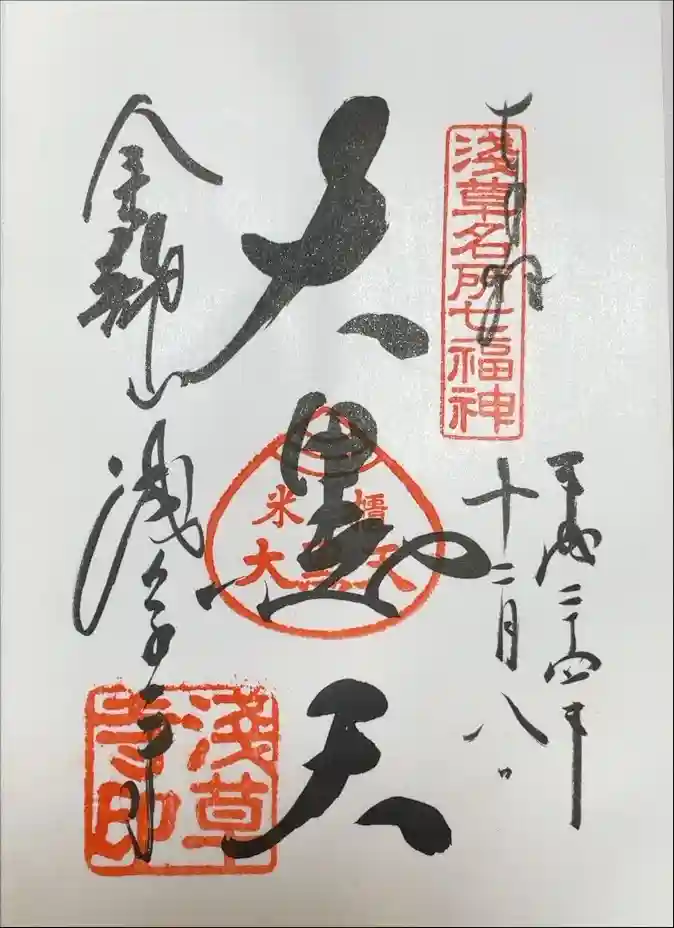 奉拝
浅草名所七福神
平成二十四年
十二月八日
大黒天
米櫃
大黒天
金龍山
浅草寺
浅草寺印